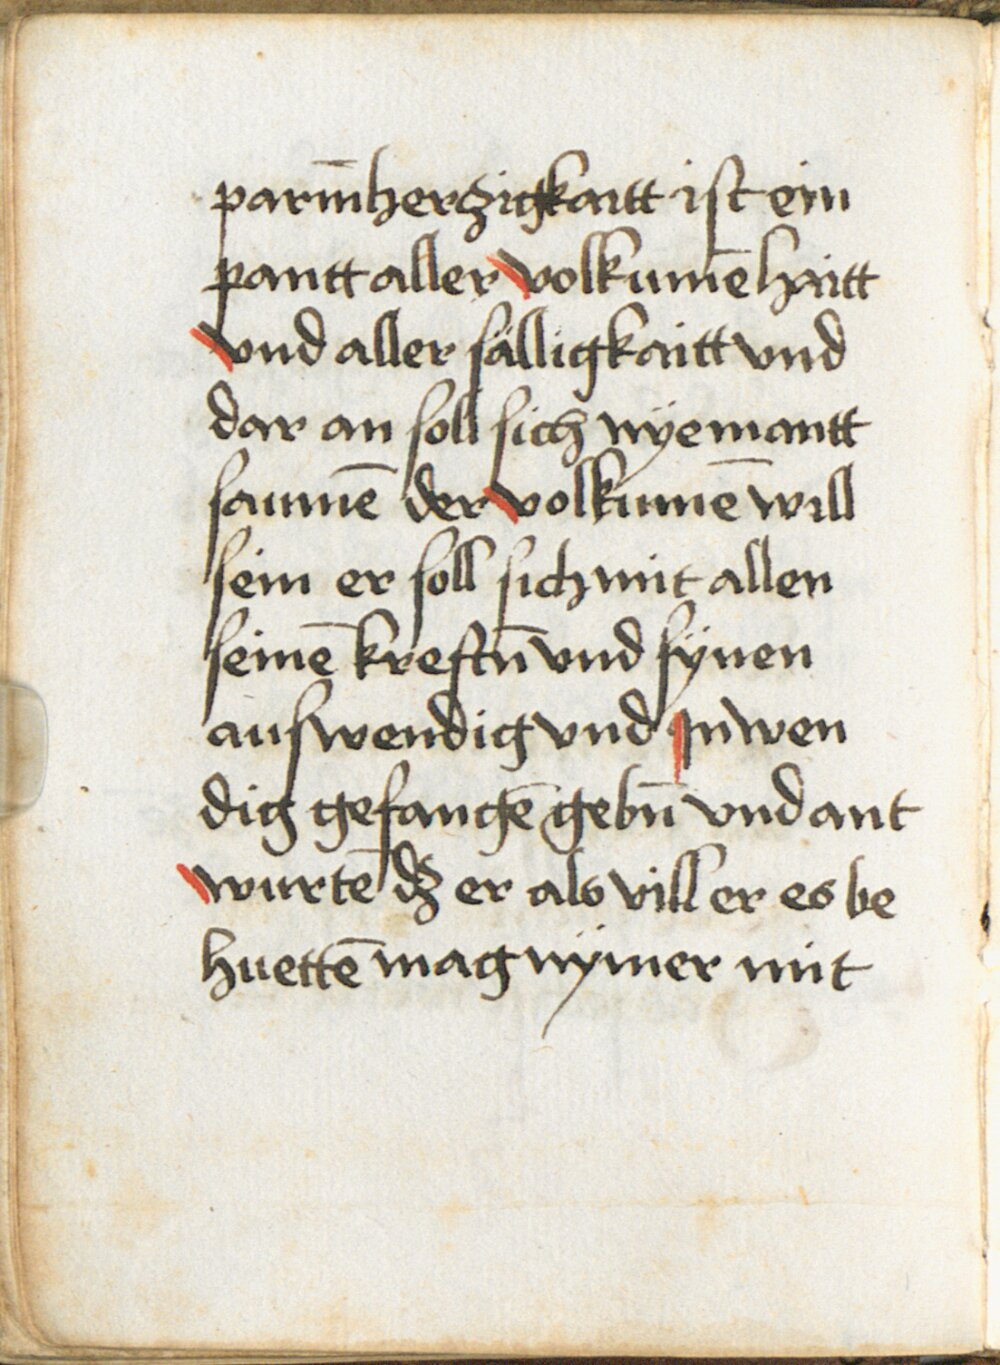 parm̄herzigkaitt ist ein
pantt aller volkumēhaitt
vnd aller sälligkaitt vnd
dar an soll sich nÿemantt
saumē der volkumē will
sein er soll sich mit allen
seinē kreftn̄ vnd sÿnen
auswendig vnd Inwen
dig gefangē gebn̄ vnd ant
wurtē dz er als vill er es be
huettē mag nÿmer mit